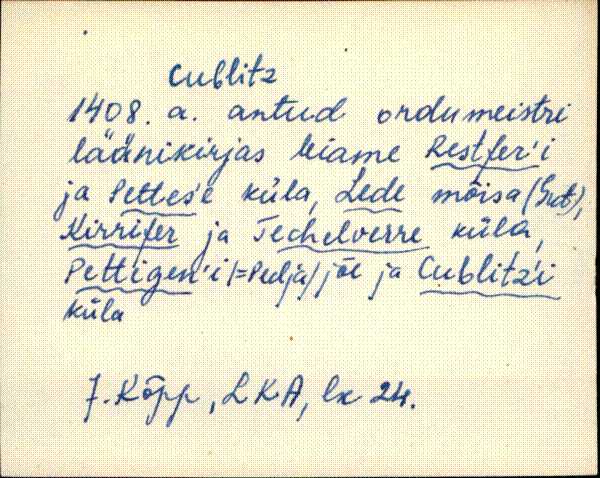 Cublitz
1408. a. antud ordumeistri
läänikirjas leiame Restfer'i
ja Pettes'e küla, Lede mõisa
Kirrifer ja Techelverre küla,
Pettigen'i (=Pedja) jõe ja Cublitz'i
küla
J. Kõpp, LKA, lk 24.